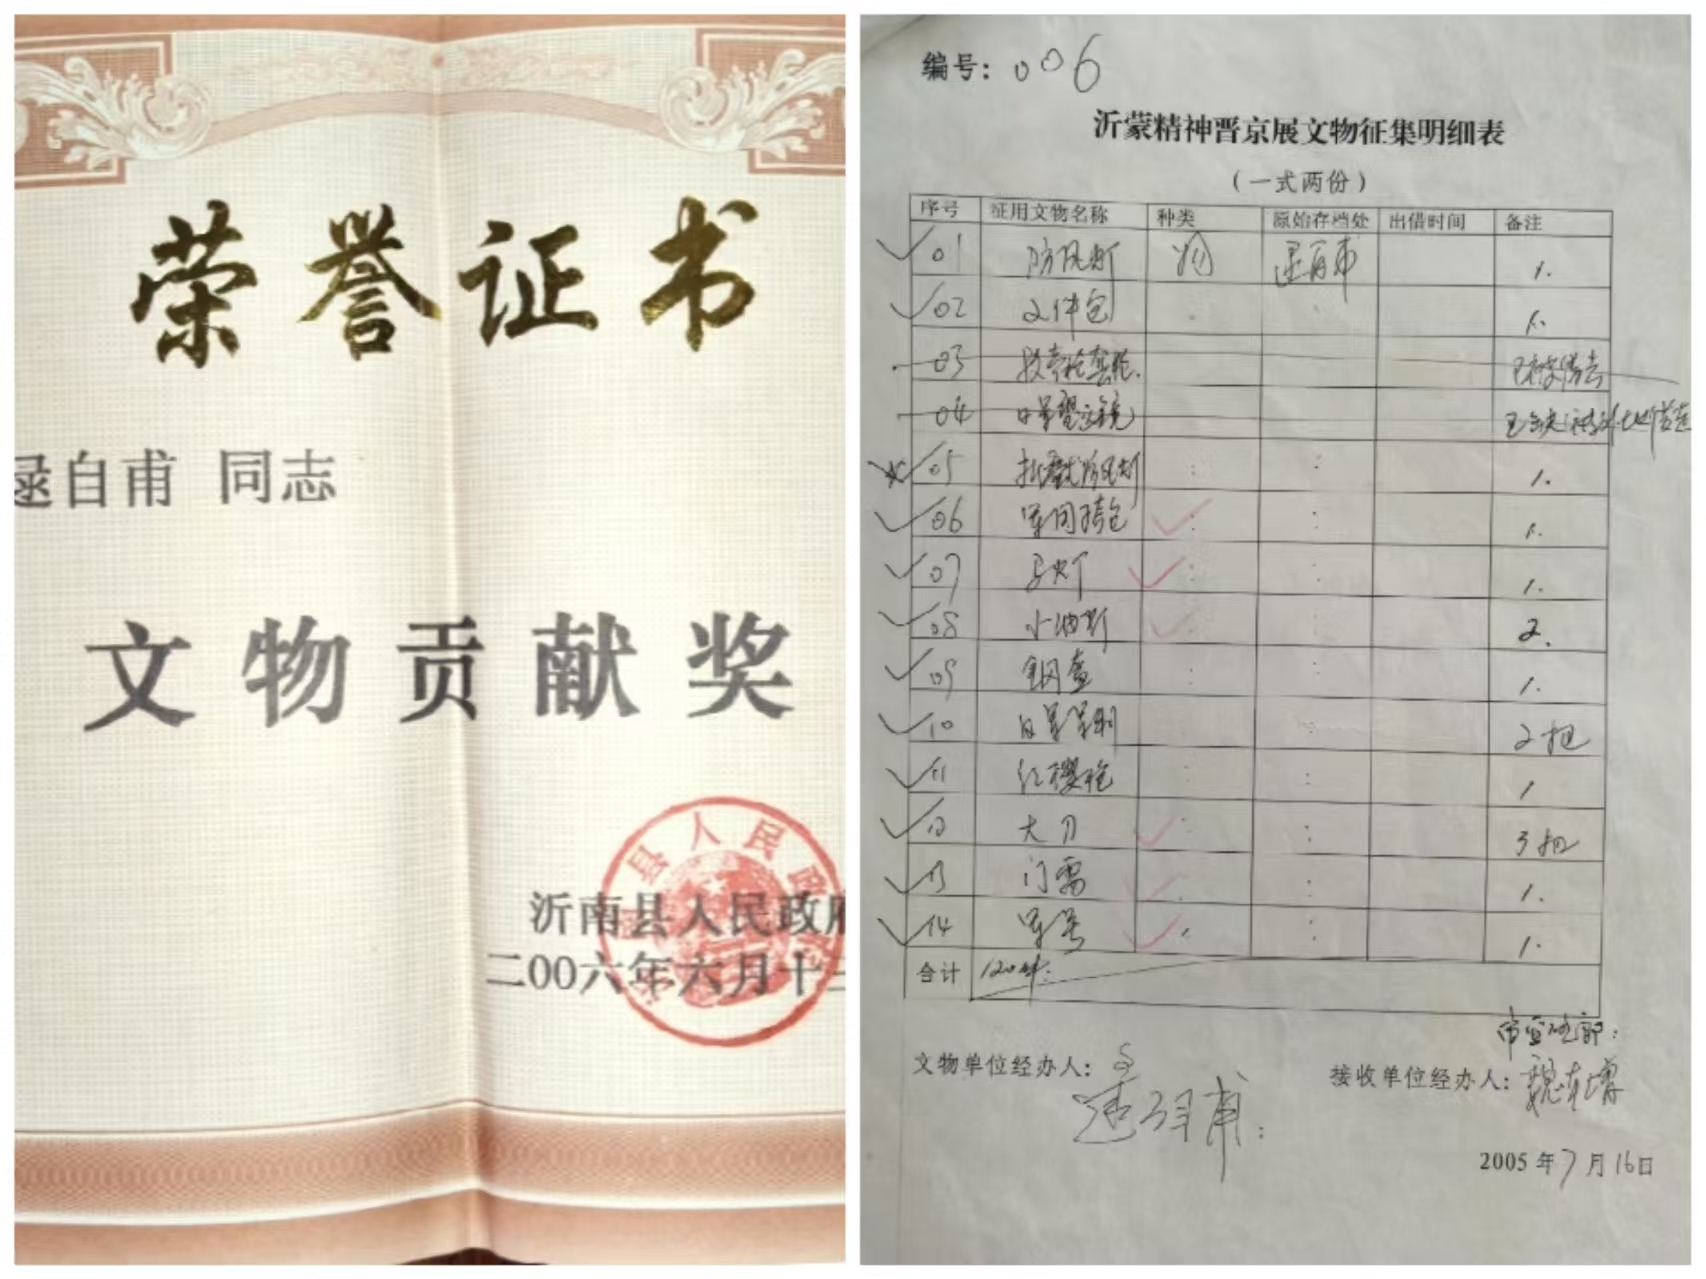 荣誉证书
逯自甫 同志
文物贡献奖
沂南县人民政府
二00六年六月十三
县人民政
编号：006
沂蒙精神晋京展文物征集明细表
（一式两份）
序号 征用文物名称 种类 原始存档处 出借时间 备注
01 防风灯 物 逯自甫 1.
02 文件包 1.
03 已被借去
04
05 防风灯 1.
06 军用挎包 1.
07 马灯 1.
08 小油灯 2.
09 钢盔 1.
10 日军军刺 2把
11 红缨枪 1
12 大刀 3把
13 门帘 1.
14 军号 1.
合计
市宣传部：
文物单位经办人： 接收单位经办人：
逯自甫
2005年7月16日